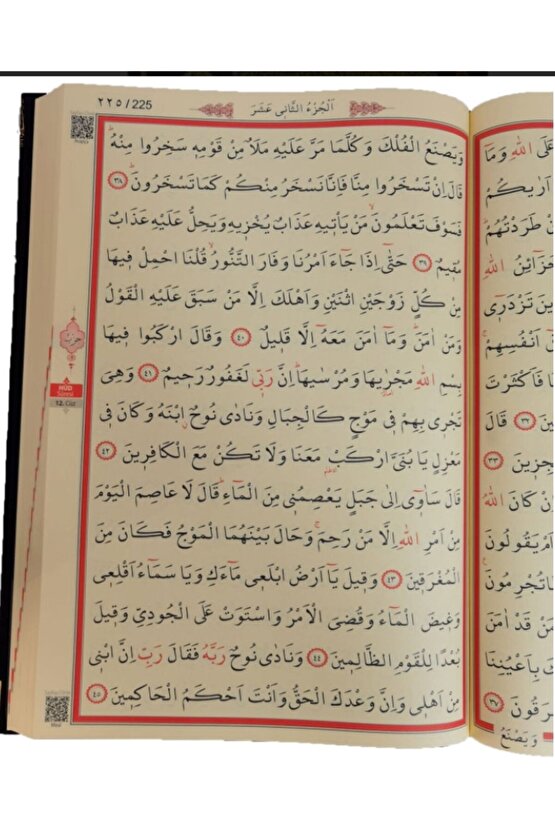 ٢٢٥ / 225
اَلْجُزْءُ الثَّانِى عَشَرَ
وَيَصْنَعُ الْفُلْكَ وَكُلَّمَا مَرَّ عَلَيْهِ مَلَأٌ مِنْ قَوْمِهٖ سَخِرُوا مِنْهُ
قَالَ اِنْ تَسْخَرُوا مِنَّا فَاِنَّا نَسْخَرُ مِنْكُمْ كَمَا تَسْخَرُونَ ٣٨
فَسَوْفَ تَعْلَمُونَ مَنْ يَأْتِيهِ عَذَابٌ يُخْزِيهِ وَيَحِلُّ عَلَيْهِ عَذَابٌ
مُقِيمٌ ٣٩ حَتّٰٓى اِذَا جَٓاءَ اَمْرُنَا وَفَارَ التَّنُّورُ قُلْنَا احْمِلْ فِيهَا
مِنْ كُلٍّ زَوْجَيْنِ اثْنَيْنِ وَاَهْلَكَ اِلَّا مَنْ سَبَقَ عَلَيْهِ الْقَوْلُ
وَمَنْ اٰمَنَ وَمَٓا اٰمَنَ مَعَهُٓ اِلَّا قَلِيلٌ ٤٠ وَقَالَ ارْكَبُوا فِيهَا
بِسْمِ اللّٰهِ مَجْرٰۭيهَا وَمُرْسٰيهَا اِنَّ رَبّٖى لَغَفُورٌ رَحِيمٌ ٤١ وَهِىَ
تَجْرٖى بِهِمْ فٖى مَوْجٍ كَالْجِبَالِ وَنَادٰى نُوحٌۨ ابْنَهُ وَكَانَ فٖى
مَعْزِلٍ يَا بُنَىَّ ارْكَبْ مَعَنَا وَلَا تَكُنْ مَعَ الْكَافِرٖينَ ٤٢
قَالَ سَاٰوٖٓى اِلٰى جَبَلٍ يَعْصِمُنٖى مِنَ الْمَٓاءِ قَالَ لَا عَاصِمَ الْيَوْمَ
مِنْ اَمْرِ اللّٰهِ اِلَّا مَنْ رَحِمَ وَحَالَ بَيْنَهُمَا الْمَوْجُ فَكَانَ مِنَ
الْمُغْرَقٖينَ ٤٣ وَقٖيلَ يَٓا اَرْضُ ابْلَعٖى مَٓاءَكِ وَيَا سَمَٓاءُ اَقْلِعٖى
وَغٖيضَ الْمَٓاءُ وَقُضِىَ الْاَمْرُ وَاسْتَوَتْ عَلَى الْجُودِىِّ وَقٖيلَ
بُعْدًا لِلْقَوْمِ الظَّالِمٖينَ ٤٤ وَنَادٰى نُوحٌ رَبَّهُ فَقَالَ رَبِّ اِنَّ ابْنٖى
مِنْ اَهْلٖى وَاِنَّ وَعْدَكَ الْحَقُّ وَاَنْتَ اَحْكَمُ الْحَاكِمٖينَ ٤٥
حزب
HÛD
Sûresi
12. Cüz
Meal
اللّٰهِ وَمَٓا
اَرٰيكُمْ
طَرَدْتُهُمْ
اللّٰهِ
تَزْدَرٖٓى
اَنْفُسِهِمْ
فَاَكْثَرْتَ
٣٢ قَالَ
٣٣
كَانَ اللّٰهُ
يَقُولُونَ
تُجْرِمُونَ
قَدْ اٰمَنَ
بِاَعْيُنِنَا
٣٧
وَيَصْنَعُ